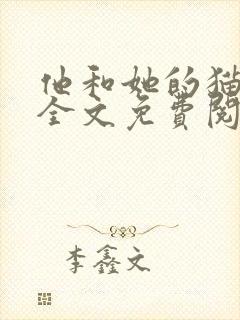 他和她的猫
全文免費閱
李鑫文